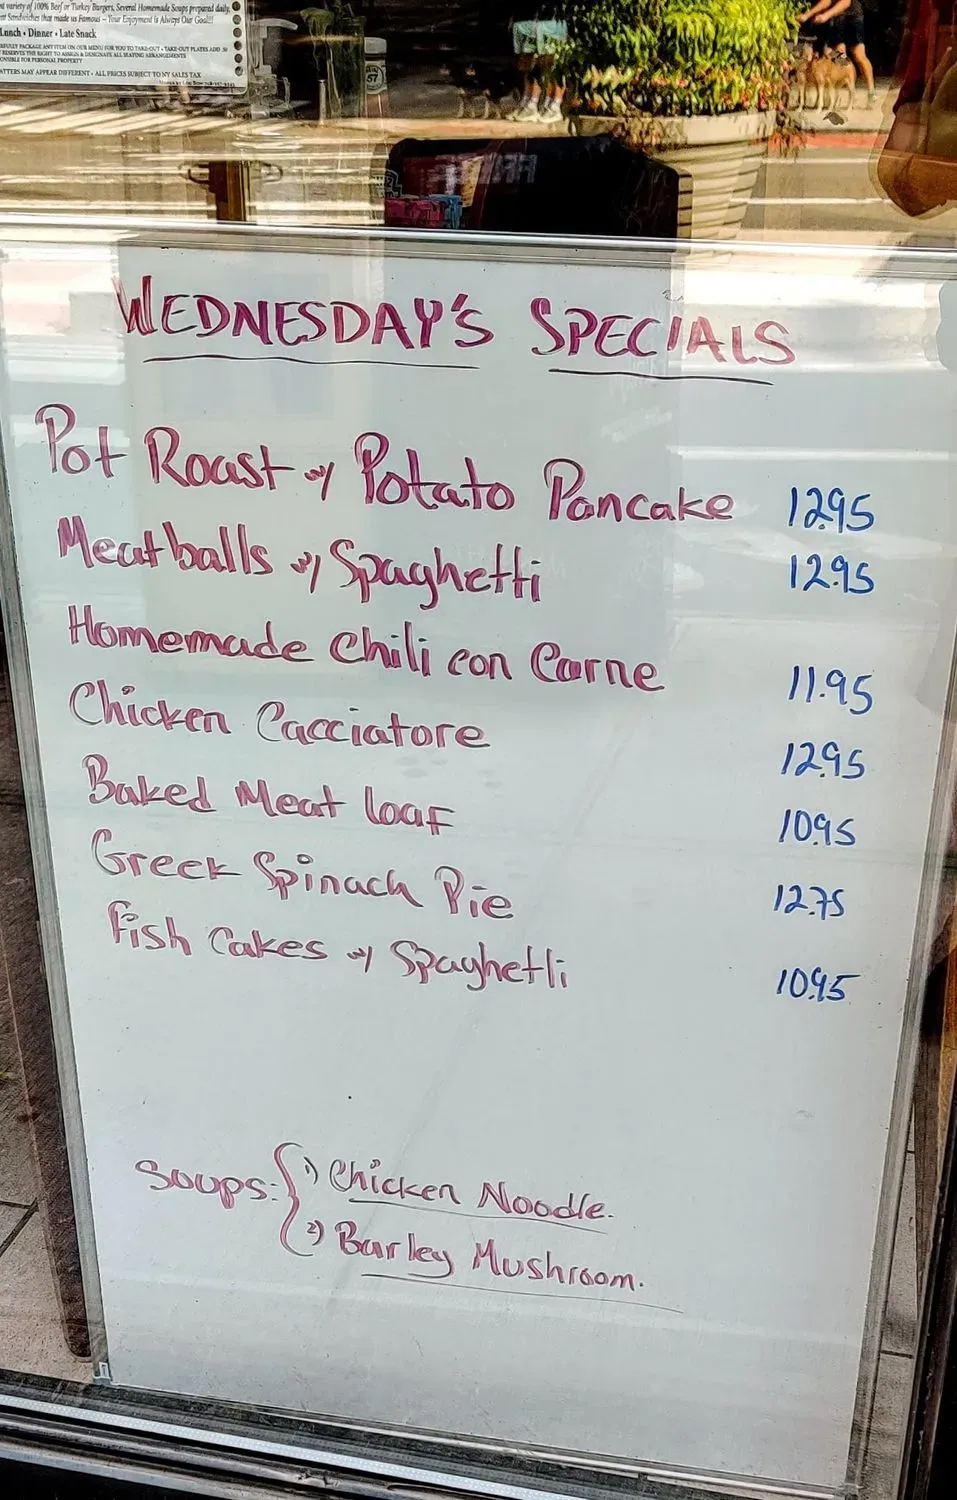 variety of 100% Beef or Turkey Burgers, Several Homemade Soups prepared daily.
Sandwiches that made us Famous - Your Enjoyment is Always Our Goal!!!
Lunch • Dinner • Late Snack
PACKAGE ANY ITEM ON OUR MENU FOR YOU TO TAKE-OUT • TAKE-OUT PLATES ADD .50
RESERVES THE RIGHT TO ASSIGN & DESIGNATE ALL SEATING ARRANGEMENTS
FOR PERSONAL PROPERTY
MAY APPEAR DIFFERENT • ALL PRICES SUBJECT TO NY SALES TAX
57
WEDNESDAY'S SPECIALS
Pot Roast w/ Potato Pancake 12.95
Meatballs w/ Spaghetti 12.95
Homemade Chili con Carne 11.95
Chicken Cacciatore 12.95
Baked Meat loaf 10.95
Greek Spinach Pie 12.75
Fish Cakes w/ Spaghetti 10.95
Soups: 1) Chicken Noodle.
2) Barley Mushroom.